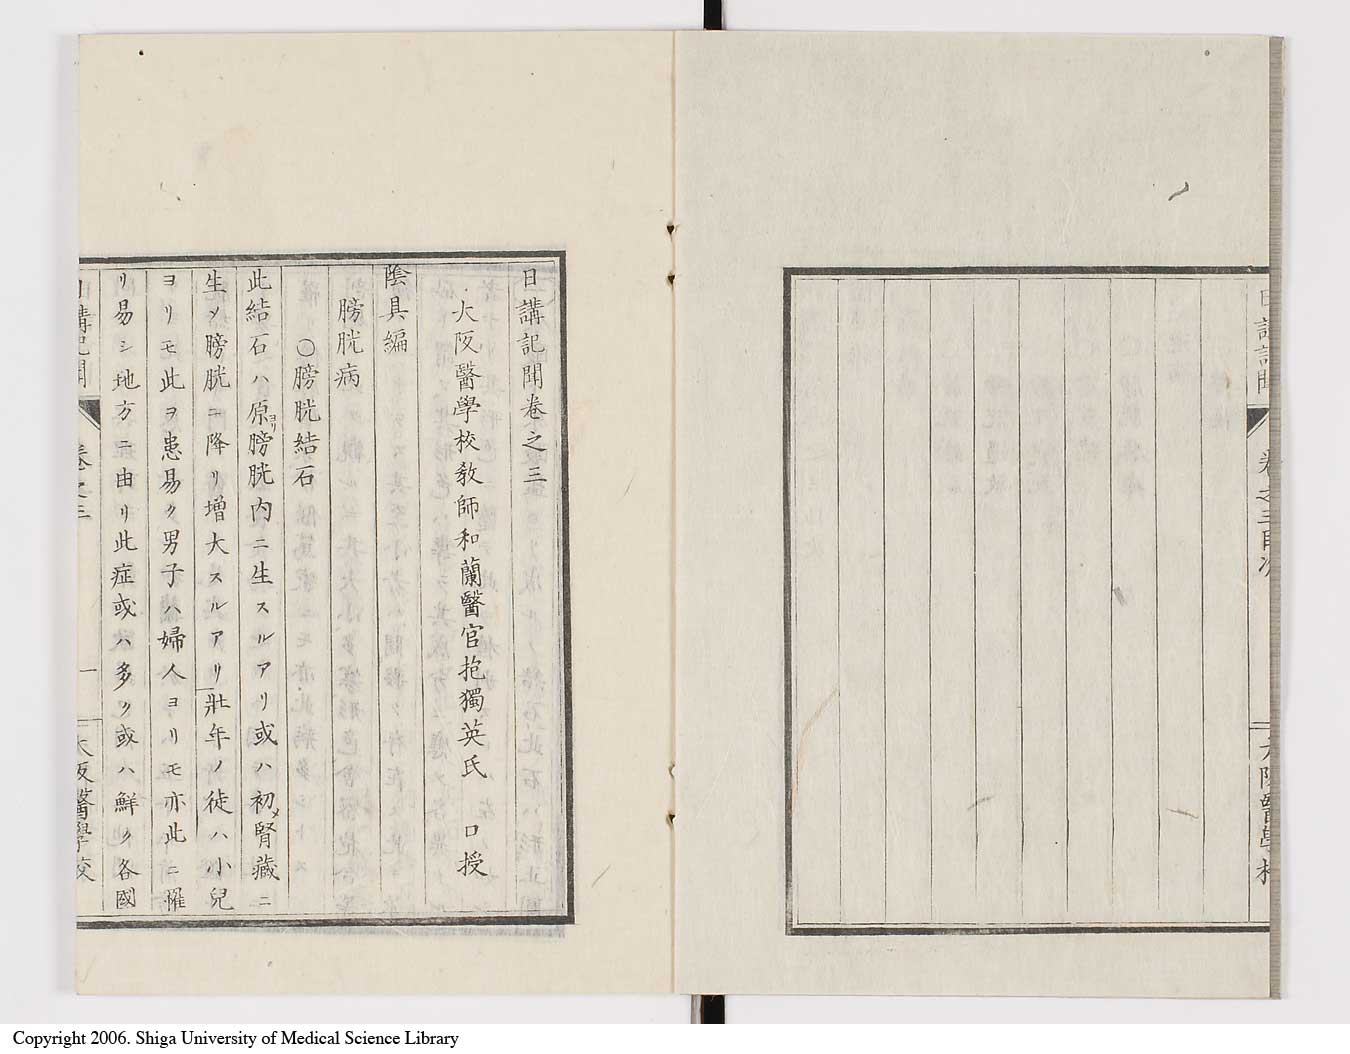 日講記聞
卷之三目次
大阪醫學校
日講記聞卷之三
大阪醫學校敎師和蘭醫官抱獨英氏 口授
陰具編
膀胱病
〇膀胱結石
此結石ハ原ヨリ膀胱内ニ生スルアリ或ハ初メ腎藏ニ
生メ膀胱ニ降リ増大スルアリ壯年ノ徒ハ小兒
ヨリモ此ヲ患易ク男子ハ婦人ヨリモ亦此ニ罹
リ易シ地方ニ由リ此症或ハ多ク或ハ鮮ク各國
日講記聞
卷之三
一
大阪醫學校
Copyright 2006. Shiga University of Medical Science Library